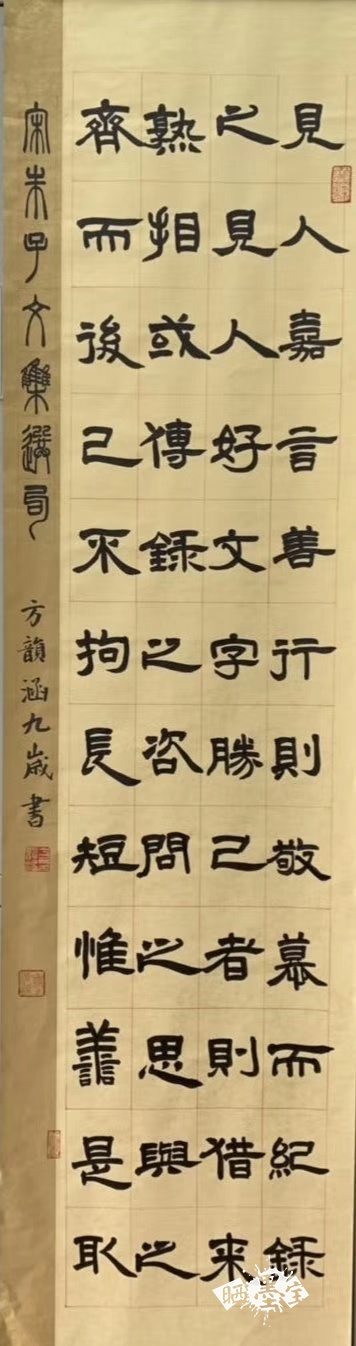 見人嘉言善行則敬慕而紀錄
之見人好文字勝己者則猎来
熟相或傅錄之咨問之思與之
齊而後已不拘長短惟善是取
宋朱子文集選句
方韻涵九歲書
晒墨宝